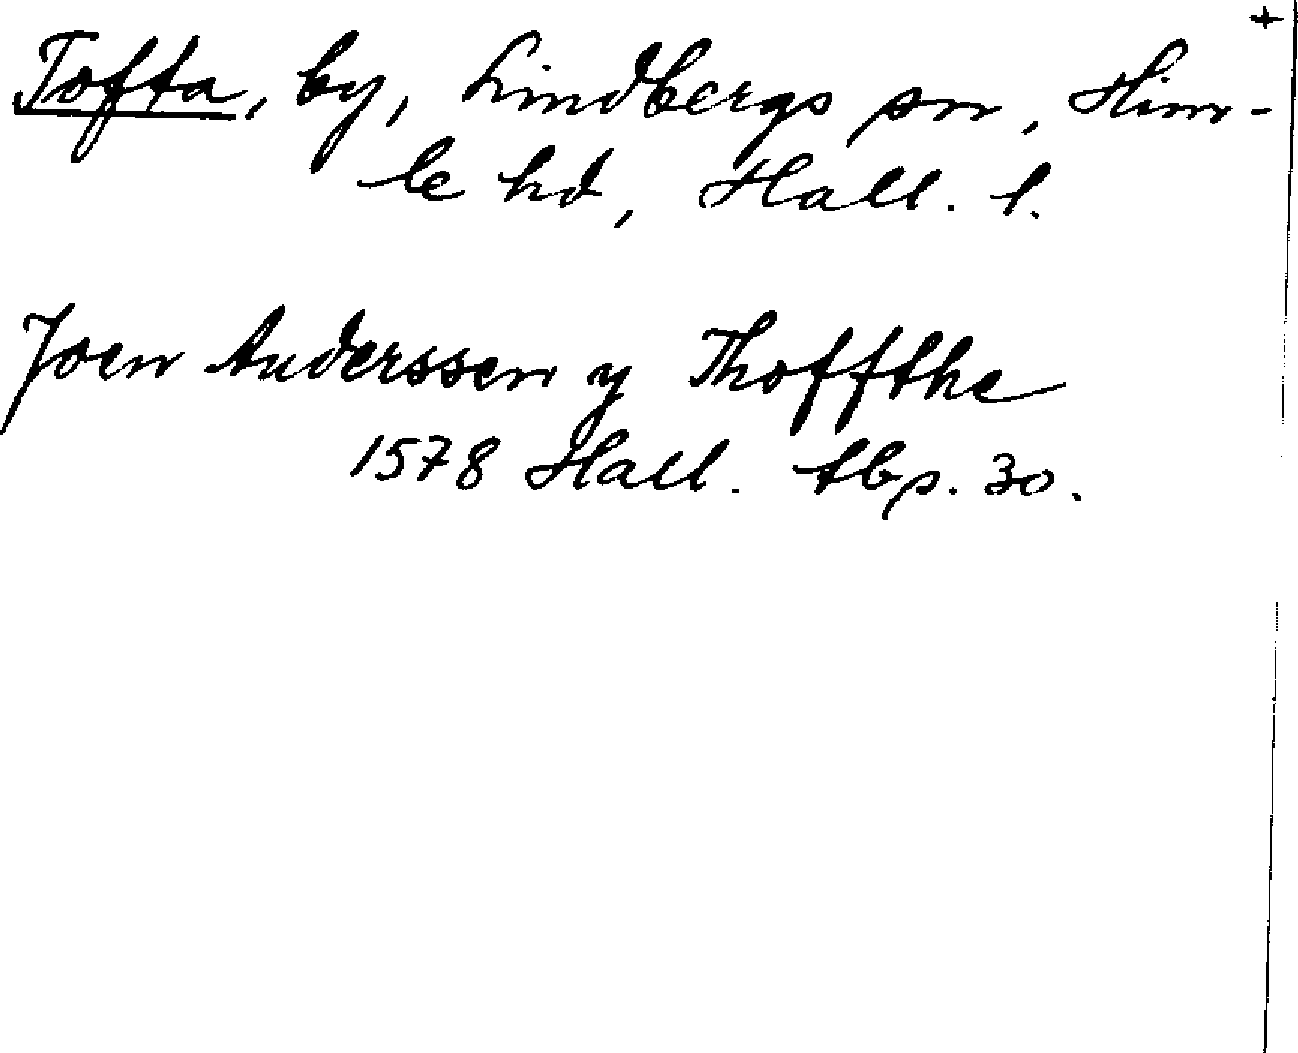 +
Tofta, by, Lindbergs sn, Him-
le hd, Hall. l.
Joen Anderssen y Thoffthe
1578 Hall. tbs. 30.